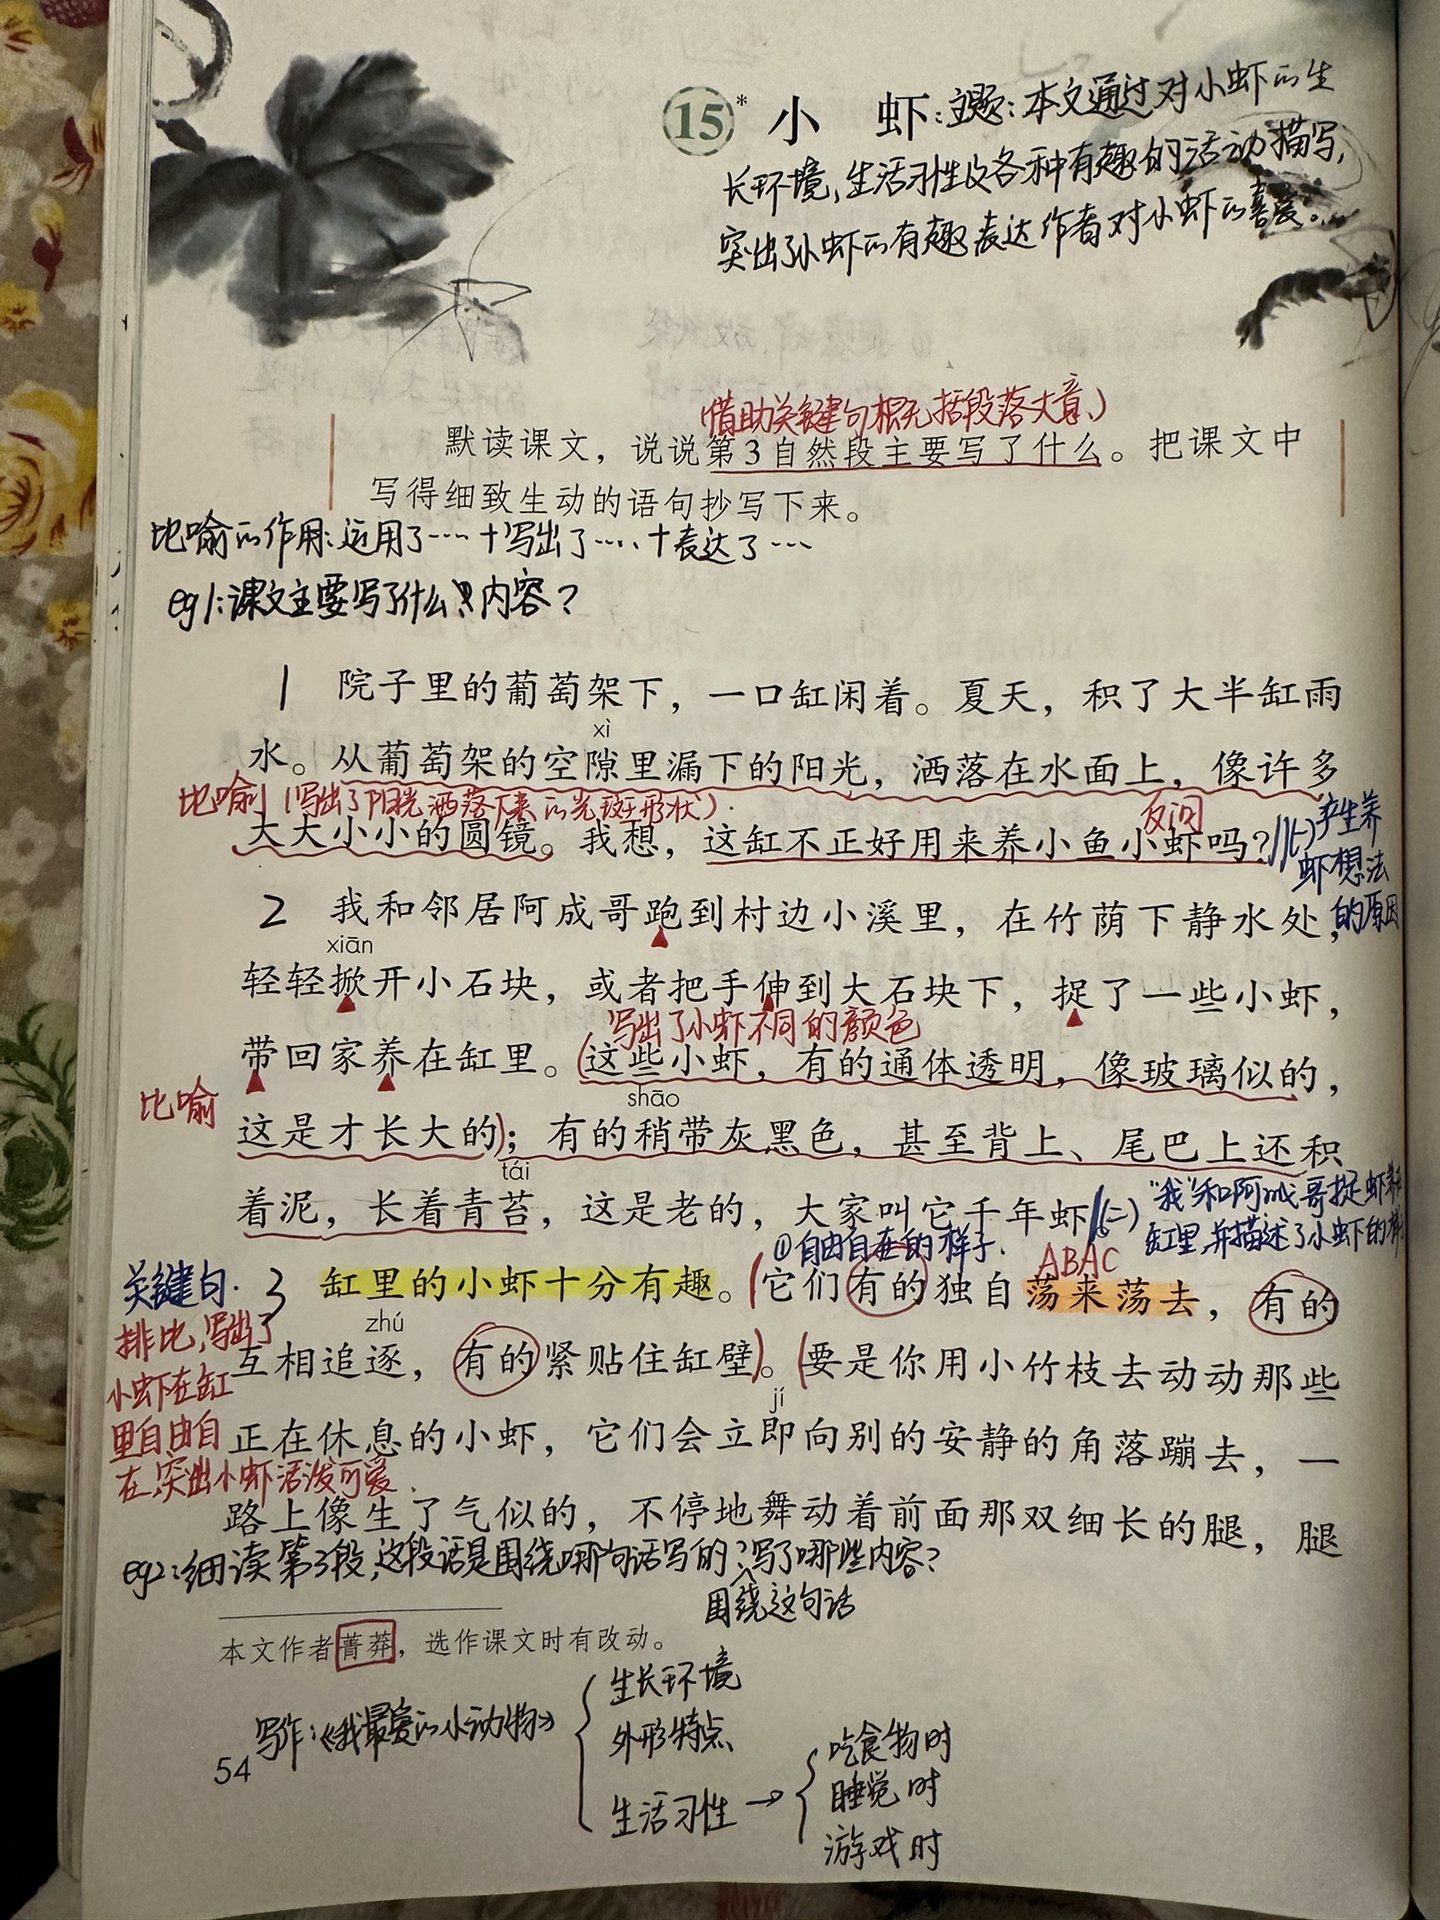 15* 小 虾:主题:本文通过对小虾的生
长环境,生活习性及各种有趣的活动描写,
突出了小虾的有趣表达作者对小虾的喜爱。
(借助关键句概括段落大意)
默读课文，说说第3自然段主要写了什么。把课文中
写得细致生动的语句抄写下来。
比喻的作用:运用了……+写出了……+表达了……
eg1:课文主要写了什么内容?
1 院子里的葡萄架下，一口缸闲着。夏天，积了大半缸雨
xì
水。从葡萄架的空隙里漏下的阳光，洒落在水面上，像许多
比喻 (写出了阳光洒落下来的光斑形状) 反问
大大小小的圆镜。我想，这缸不正好用来养小鱼小虾吗？
//(一)产生养
虾想法
的原因
2 我和邻居阿成哥跑到村边小溪里，在竹荫下静水处，
xiān
轻轻掀开小石块，或者把手伸到大石块下，捉了一些小虾，
写出了小虾不同的颜色
带回家养在缸里。(这些小虾，有的通体透明，像玻璃似的，
比喻
shāo
这是才长大的)；有的稍带灰黑色，甚至背上、尾巴上还积
tái
着泥，长着青苔，这是老的，大家叫它千年虾
//(二)"我"和阿成哥捉虾养在
缸里,并描述了小虾的样子
①自由自在的样子.
ABAC
关键句. 3 缸里的小虾十分有趣。(它们有的独自荡来荡去，有的
排比,写出了
小虾在缸
里自由自
在,突出小虾活泼可爱.
zhú
互相追逐，有的紧贴住缸壁)。(要是你用小竹枝去动动那些
jí
正在休息的小虾，它们会立即向别的安静的角落蹦去，一
路上像生了气似的，不停地舞动着前面那双细长的腿，腿
eg2:细读第3段,这段话是围绕哪句话写的?写了哪些内容?
围绕这句话
本文作者菁莽，选作课文时有改动。
写作:《我最爱的小动物》
生长环境
外形特点
生活习性→
吃食物时
睡觉时
游戏时
54